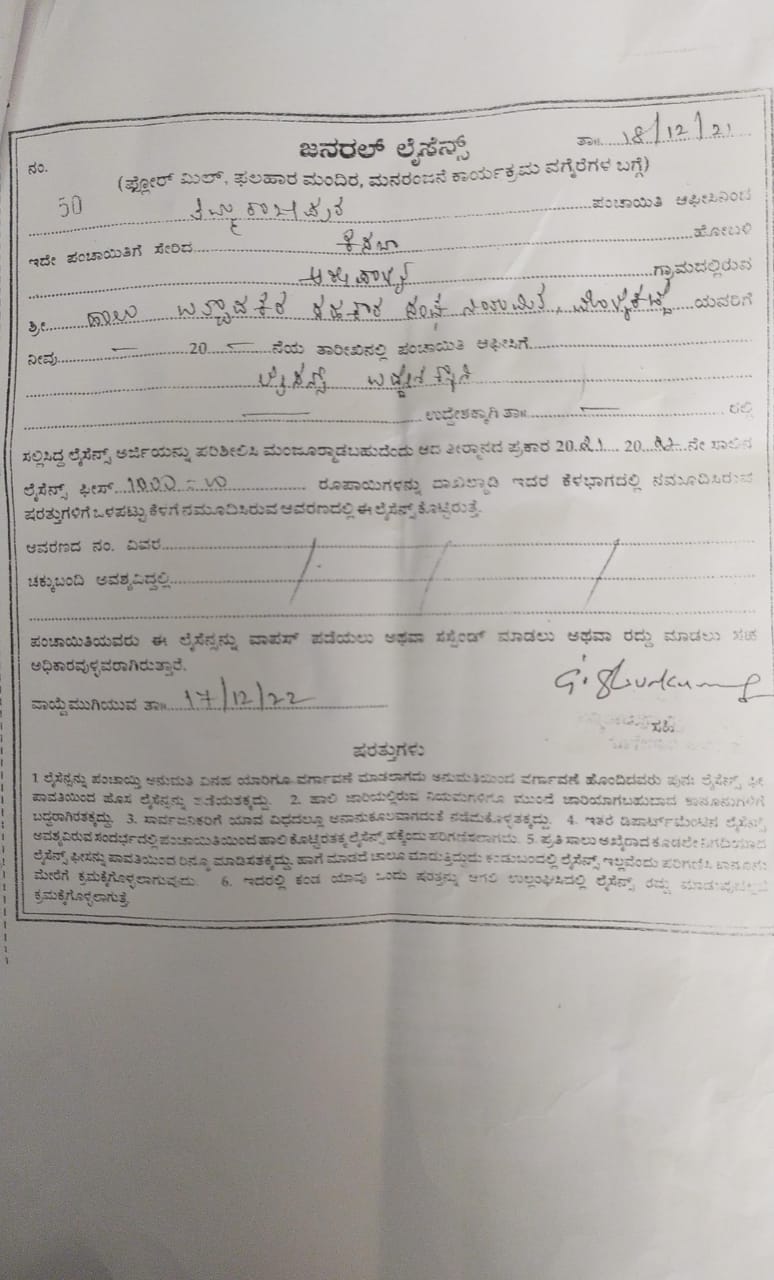 ಜನರಲ್ ಲೈಸೆನ್ಸ್
ನಂ. ತಾ॥ 18/12/21
(ಫ್ಲೋರ್ ಮಿಲ್, ಫಲಹಾರ ಮಂದಿರ, ಮನರಂಜನೆ ಕಾರ್ಯಕ್ರಮ ವಗೈರೆಗಳ ಬಗ್ಗೆ)
50 ಪಂಚಾಯಿತಿ ಆಫೀಸಿನಿಂದ
ಇದೇ ಪಂಚಾಯಿತಿಗೆ ಸೇರಿದ ಕಸಬಾ ಹೋಬಳಿ
ಗ್ರಾಮದಲ್ಲಿರುವ
ಶ್ರೀ ಹಾಲು ಉತ್ಪಾದಕರ ಸಹಕಾರ ಸಂಘ ಯವರಿಗೆ
ನೀವು — 20 — ನೆಯ ತಾರೀಖಿನಲ್ಲಿ ಪಂಚಾಯಿತಿ ಆಫೀಸಿಗೆ
ಲೈಸೆನ್ಸ್
— ಉದ್ದೇಶಕ್ಕಾಗಿ ತಾ॥ — ರಲ್ಲಿ
ಸಲ್ಲಿಸಿದ್ದ ಲೈಸೆನ್ಸ್ ಅರ್ಜಿಯನ್ನು ಪರಿಶೀಲಿಸಿ ಮಂಜೂರ್ಮಾಡಬಹುದೆಂದು ಆದ ತೀರ್ಮಾನದ ಪ್ರಕಾರ 20 20 ನೇ ಸಾಲಿನ
ಲೈಸೆನ್ಸ್ ಫೀಸ್ 1000=00 ರೂಪಾಯಿಗಳನ್ನು ದಾಖಲ್ಮಾಡಿ ಇದರ ಕೆಳಭಾಗದಲ್ಲಿ ನಮೂದಿಸಿರುವ
ಷರತ್ತುಗಳಿಗೆ ಒಳಪಟ್ಟು ಕೆಳಗೆ ನಮೂದಿಸಿರುವ ಆವರಣದಲ್ಲಿ ಈ ಲೈಸೆನ್ಸ್ ಕೊಟ್ಟಿರುತ್ತೆ.
ಆವರಣದ ನಂ. ವಿವರ
ಚಕ್ಕುಬಂದಿ ಅವಶ್ಯವಿದ್ದಲ್ಲಿ
ಪಂಚಾಯಿತಿಯವರು ಈ ಲೈಸೆನ್ಸನ್ನು ವಾಪಸ್ ಪಡೆಯಲು ಅಥವಾ ಸಸ್ಪೆಂಡ್ ಮಾಡಲು ಅಥವಾ ರದ್ದು ಮಾಡಲು ಸಹ
ಅಧಿಕಾರವುಳ್ಳವರಾಗಿರುತ್ತಾರೆ.
ವಾಯ್ದೆಮುಗಿಯುವ ತಾ॥ 17/12/22
ಸಹಿ
ಷರತ್ತುಗಳು
1 ಲೈಸೆನ್ಸನ್ನು ಪಂಚಾಯ್ತಿ ಅನುಮತಿ ವಿನಹ ಯಾರಿಗೂ ವರ್ಗಾವಣೆ ಮಾಡಲಾಗದು ಅನುಮತಿಯಿಂದ ವರ್ಗಾವಣೆ ಹೊಂದಿದವರು ಪುನಃ ಲೈಸೆನ್ಸ್ ಫೀ
ಪಾವತಿಯಿಂದ ಹೊಸ ಲೈಸೆನ್ಸನ್ನು ಪಡೆಯತಕ್ಕದ್ದು. 2. ಹಾಲಿ ಜಾರಿಯಲ್ಲಿರುವ ನಿಯಮಗಳಿಗೂ ಮುಂದೆ ಜಾರಿಯಾಗಬಹುದಾದ ಕಾನೂನುಗಳಿಗೆ
ಬದ್ಧರಾಗಿರತಕ್ಕದ್ದು. 3. ಸಾರ್ವಜನಿಕರಿಗೆ ಯಾವ ವಿಧದಲ್ಲೂ ಅನಾನುಕೂಲವಾಗದಂತೆ ನಡೆದುಕೊಳ್ಳತಕ್ಕದ್ದು. 4. ಇತರೆ ಡಿಪಾರ್ಟ್‌ಮೆಂಟಿನ ಲೈಸೆನ್ಸ್
ಅವಶ್ಯವಿರುವ ಸಂದರ್ಭದಲ್ಲಿ ಪಂಚಾಯಿತಿಯಿಂದ ಹಾಲಿ ಕೊಟ್ಟಿರತಕ್ಕ ಲೈಸೆನ್ಸ್ ಹಕ್ಕೆಂದು ಪರಿಗಣಿಸಲಾಗದು. 5. ಪ್ರತಿ ಸಾಲು ಅಖೈರಾದ ಕೂಡಲೇ
ಲೈಸೆನ್ಸ್ ಫೀಸನ್ನು ಪಾವತಿಯಿಂದ ರಿನ್ಯೂ ಮಾಡಿಸತಕ್ಕದ್ದು. ಹಾಗೆ ಮಾಡದೆ ಚಾಲೂ ಮಾಡುತ್ತಿದ್ದುದು ಕಂಡುಬಂದಲ್ಲಿ ಲೈಸೆನ್ಸ್ ಇಲ್ಲವೆಂದು ಪರಿಗಣಿಸಿ ಕಾನೂನು
ಮೇರೆಗೆ ಕ್ರಮಕೈಗೊಳ್ಳಲಾಗುವುದು. 6. ಇದರಲ್ಲಿ ಕಂಡ ಯಾವು ಒಂದು ಷರತ್ತನ್ನು ಆಗಲಿ ಉಲ್ಲಂಘಿಸಿದಲ್ಲಿ ಲೈಸೆನ್ಸ್ ರದ್ದು
ಕ್ರಮಕೈಗೊಳ್ಳಲಾಗುತ್ತೆ.